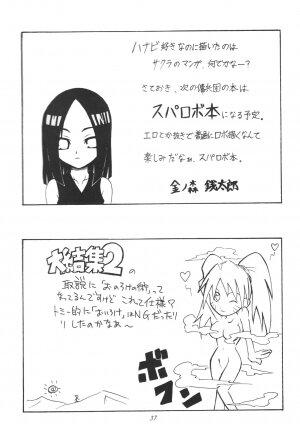 ハナビ好きなのに描いたのは
サクラのマンガ、何でかなー?
さておき、次の傭兵団の本は、
スパロボ本になる予定。
エロとか抜きで普通にロボ描くなんて
楽しみだなぁ、スパロボ本。
金ノ森 銭太郎
大結集2の
取説に「おいろけの術」って
あってるんですけど これって仕様?
トミー的に「おいろけ」はNGだった
りしたのかなあ〜
ボフン
37